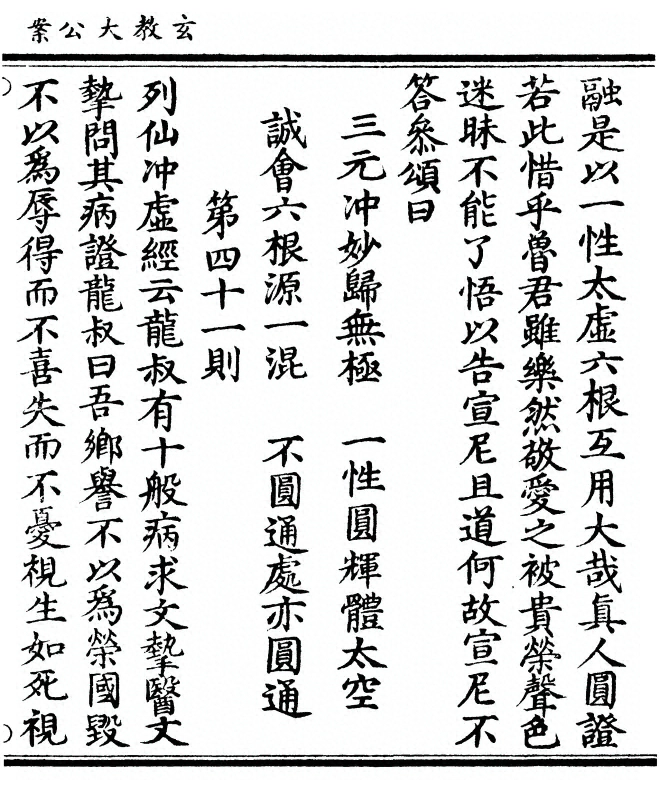 玄教大公案
融是以一性太虛六根互用大哉眞人圓證
若此惜乎魯君雖樂然敬愛之被貴榮聲色
迷昧不能了悟以告宣尼且道何故宣尼不
答叅頌曰
三元冲妙歸無極　一性圓輝體太空
誠會六根源一混　不圓通處亦圓通
第四十一則
列仙冲虛經云龍叔有十般病求文摯醫文
摯問其病證龍叔曰吾鄉譽不以爲榮國毀
不以爲辱得而不喜失而不憂視生如死視